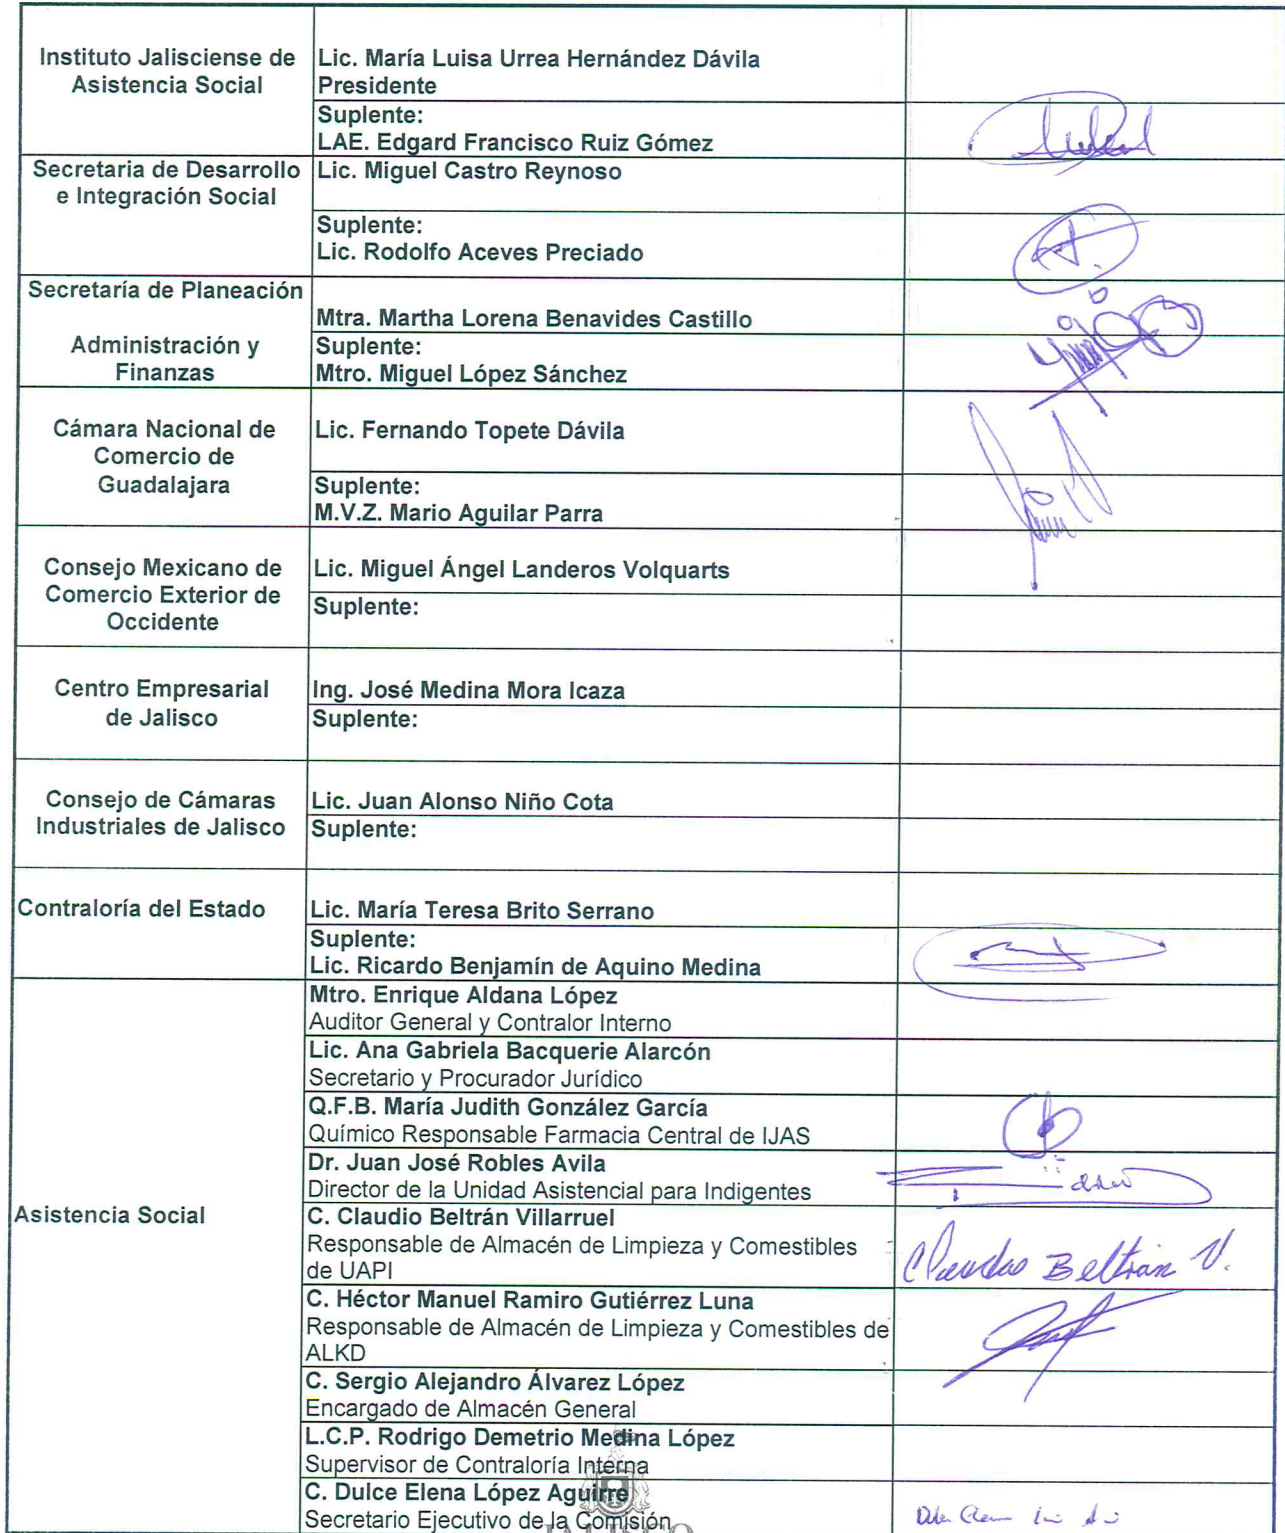 Instituto Jalisciense de
Asistencia Social
Lic. María Luisa Urrea Hernández Dávila
Presidente
Suplente:
LAE. Edgard Francisco Ruiz Gómez
Secretaria de Desarrollo
e Integración Social
Lic. Miguel Castro Reynoso
Suplente:
Lic. Rodolfo Aceves Preciado
Secretaría de Planeación
Administración y
Finanzas
Mtra. Martha Lorena Benavides Castillo
Suplente:
Mtro. Miguel López Sánchez
Cámara Nacional de
Comercio de
Guadalajara
Lic. Fernando Topete Dávila
Suplente:
M.V.Z. Mario Aguilar Parra
Consejo Mexicano de
Comercio Exterior de
Occidente
Lic. Miguel Ángel Landeros Volquarts
Suplente:
Centro Empresarial
de Jalisco
Ing. José Medina Mora Icaza
Suplente:
Consejo de Cámaras
Industriales de Jalisco
Lic. Juan Alonso Niño Cota
Suplente:
Contraloría del Estado
Lic. María Teresa Brito Serrano
Suplente:
Lic. Ricardo Benjamín de Aquino Medina
Asistencia Social
Mtro. Enrique Aldana López
Auditor General y Contralor Interno
Lic. Ana Gabriela Bacquerie Alarcón
Secretario y Procurador Jurídico
Q.F.B. María Judith González García
Químico Responsable Farmacia Central de IJAS
Dr. Juan José Robles Avila
Director de la Unidad Asistencial para Indigentes
C. Claudio Beltrán Villarruel
Responsable de Almacén de Limpieza y Comestibles
de UAPI
Beltrán V.
C. Héctor Manuel Ramiro Gutiérrez Luna
Responsable de Almacén de Limpieza y Comestibles de
ALKD
C. Sergio Alejandro Álvarez López
Encargado de Almacén General
L.C.P. Rodrigo Demetrio Medina López
Supervisor de Contraloría Interna
C. Dulce Elena López Aguirre
Secretario Ejecutivo de la Comisión
JALISCO